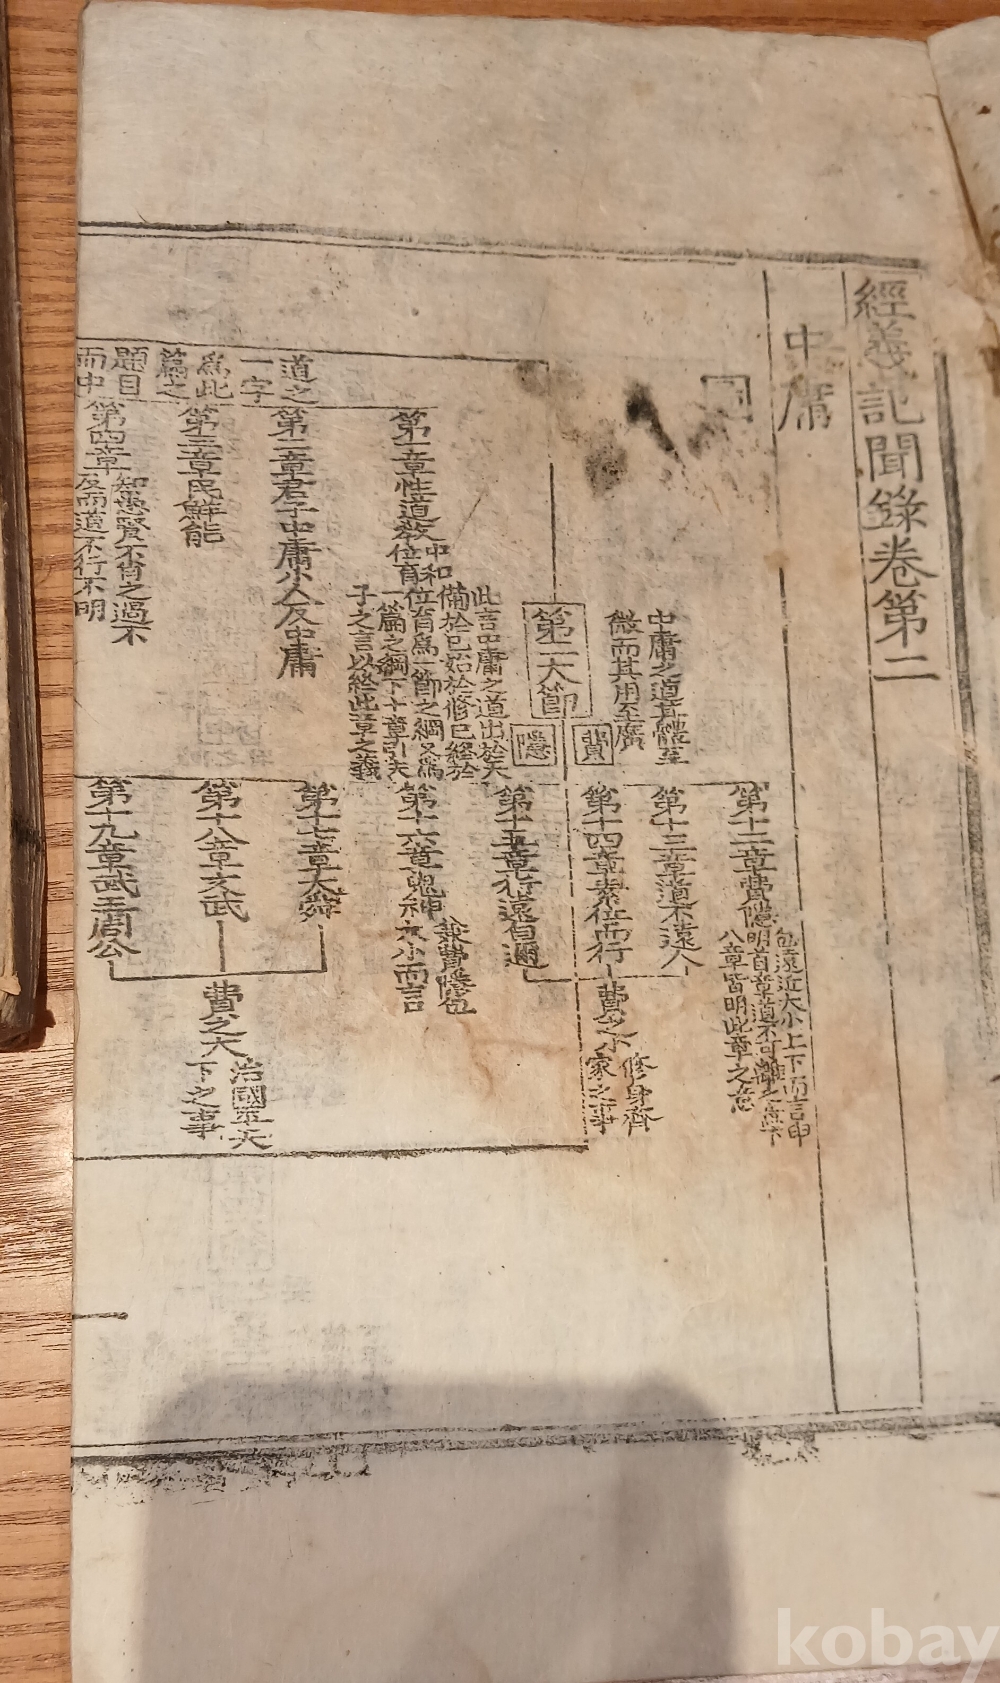 經義記聞錄卷第二
中庸
圖
中庸之道其體至
微而其用至廣
第二大節
費
隱
第一章性道敎
中和
位育
此言中庸之道出於天
備於已始於修已終於
位育爲一節之綱又爲
一篇之綱下十章引夫
子之言以終此章之義
道之
一字
爲此
篇之
題目
而中
第二章君子中庸小人反中庸
第三章民鮮能
第四章
知愚賢不肖之過不
及而道不行不明
第十二章費隱
包遠近大小上下而言申
明首章道不可離之意下
八章皆明此章之意
第十三章道不遠人
第十四章素位而行
第十五章行遠自邇
費之小
修身齊
家之事
第十六章鬼神
兼費隱包
大小而言
第十七章大舜
第十八章文武
第十九章武王周公
費之大
治國平天
下之事
kobay